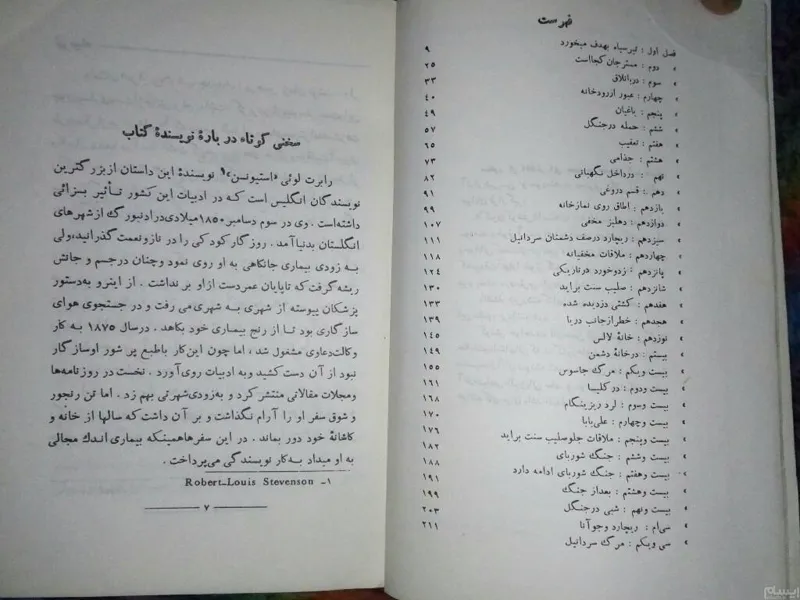 فهرست
فصل اول : تیرسیاه بهدف میخورد ۹
» دوم : مسترجان کجااست ۲۵
» سوم : درباتلاق ۳۳
» چهارم : عبور ازرودخانه ۴۰
» پنجم : یاغیان ۴۹
» ششم : حمله درجنگل ۵۷
» هفتم : تعقیب ۶۵
» هشتم : جذامی ۷۳
» نهم : درداخل نگهبانی ۸۲
» دهم : قسم دروغی ۹۱
» یازدهم : اطاق روی نمازخانه ۹۹
» دوازدهم : دهلیز مخفی ۱۰۷
» سیزدهم : ریچارد درصف دشمنان سردانیل ۱۱۱
» چهاردهم : ملاقات مخفیانه ۱۱۸
» پانزدهم : زدوخورد درتاریکی ۱۲۴
» شانزدهم : صلیب سنت براید ۱۳۰
» هفدهم : کشتی دزدیده شده ۱۳۳
» هجدهم : خطرازجانب دریا ۱۳۹
» نوزدهم : خانهٔ لالس ۱۴۵
» بیستم : درخانهٔ دشمن ۱۴۹
» بیست ویکم : مرگ جاسوس ۱۵۵
» بیست ودوم : در کلیسا ۱۶۱
» بیست وسوم : لرد ریزینگام ۱۶۸
» بیست وچهارم : علی‌بابا ۱۷۰
» بیست وپنجم : ملاقات جلوصلیب سنت براید ۱۷۶
» بیست وششم : جنگ شوربای ۱۸۲
» بیست وهفتم : جنگ شوربای ادامه دارد ۱۸۸
» بیست وهشتم : بعداز جنگ ۱۹۱
» بیست ونهم : شبی درجنگل ۱۹۹
» سی‌ام : ریچارد وجوآنا ۲۰۳
» سی ویکم : مرگ سردانیل ۲۱۱
سخنی کوتاه در بارهٔ نویسندهٔ کتاب
رابرت لوئی «استیونسن»۱ نویسندهٔ این داستان ازبزرگترین
نویسندگان انگلیس است که در ادبیات این کشور تأثیر بسزائی
داشته‌است . وی در سوم دسامبر ۱۸۵۰میلادی‌درادنبورگ ازشهرهای
انگلستان بدنیاآمد . روزگار کودکی را در نازونعمت گذرانید،ولی
به زودی بیماری جانکاهی به او روی نمود وچنان درجسم و جانش
ریشه گرفت که تاپایان عمردست ازاو بر نداشت . از اینرو به‌دستور
پزشکان پیوسته از شهری به شهری می رفت و در جستجوی هوای
سازگاری بود تا از رنج بیماری خود بکاهد . درسال ۱۸۷۵ به کار
وکالت‌دعاوی مشغول شد ، اما چون این‌کار باطبع پر شور اوسازگار
نبود از آن دست کشید وبه ادبیات روی‌آورد . نخست در روزنامه‌ها
ومجلات مقالاتی منتشر کرد و به‌زودی‌شهرتی بهم زد . اما تن رنجور
و شوق سفر او را آرام نگذاشت و بر آن داشت که سالها از خانه و
کاشانهٔ خود دور بماند . در این سفرها‌همینکه بیماری اندک مجالی
به او میداد به‌کار نویسندگی می‌پرداخت .
۱- Robert-Louis Stevenson
۷
ایسام